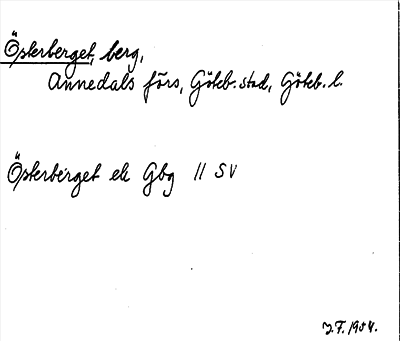 Österberget, berg,
Annedals förs, Göteb. stad, Göteb. l.
Österberget ek Gbg // SV
J.F. 1954.